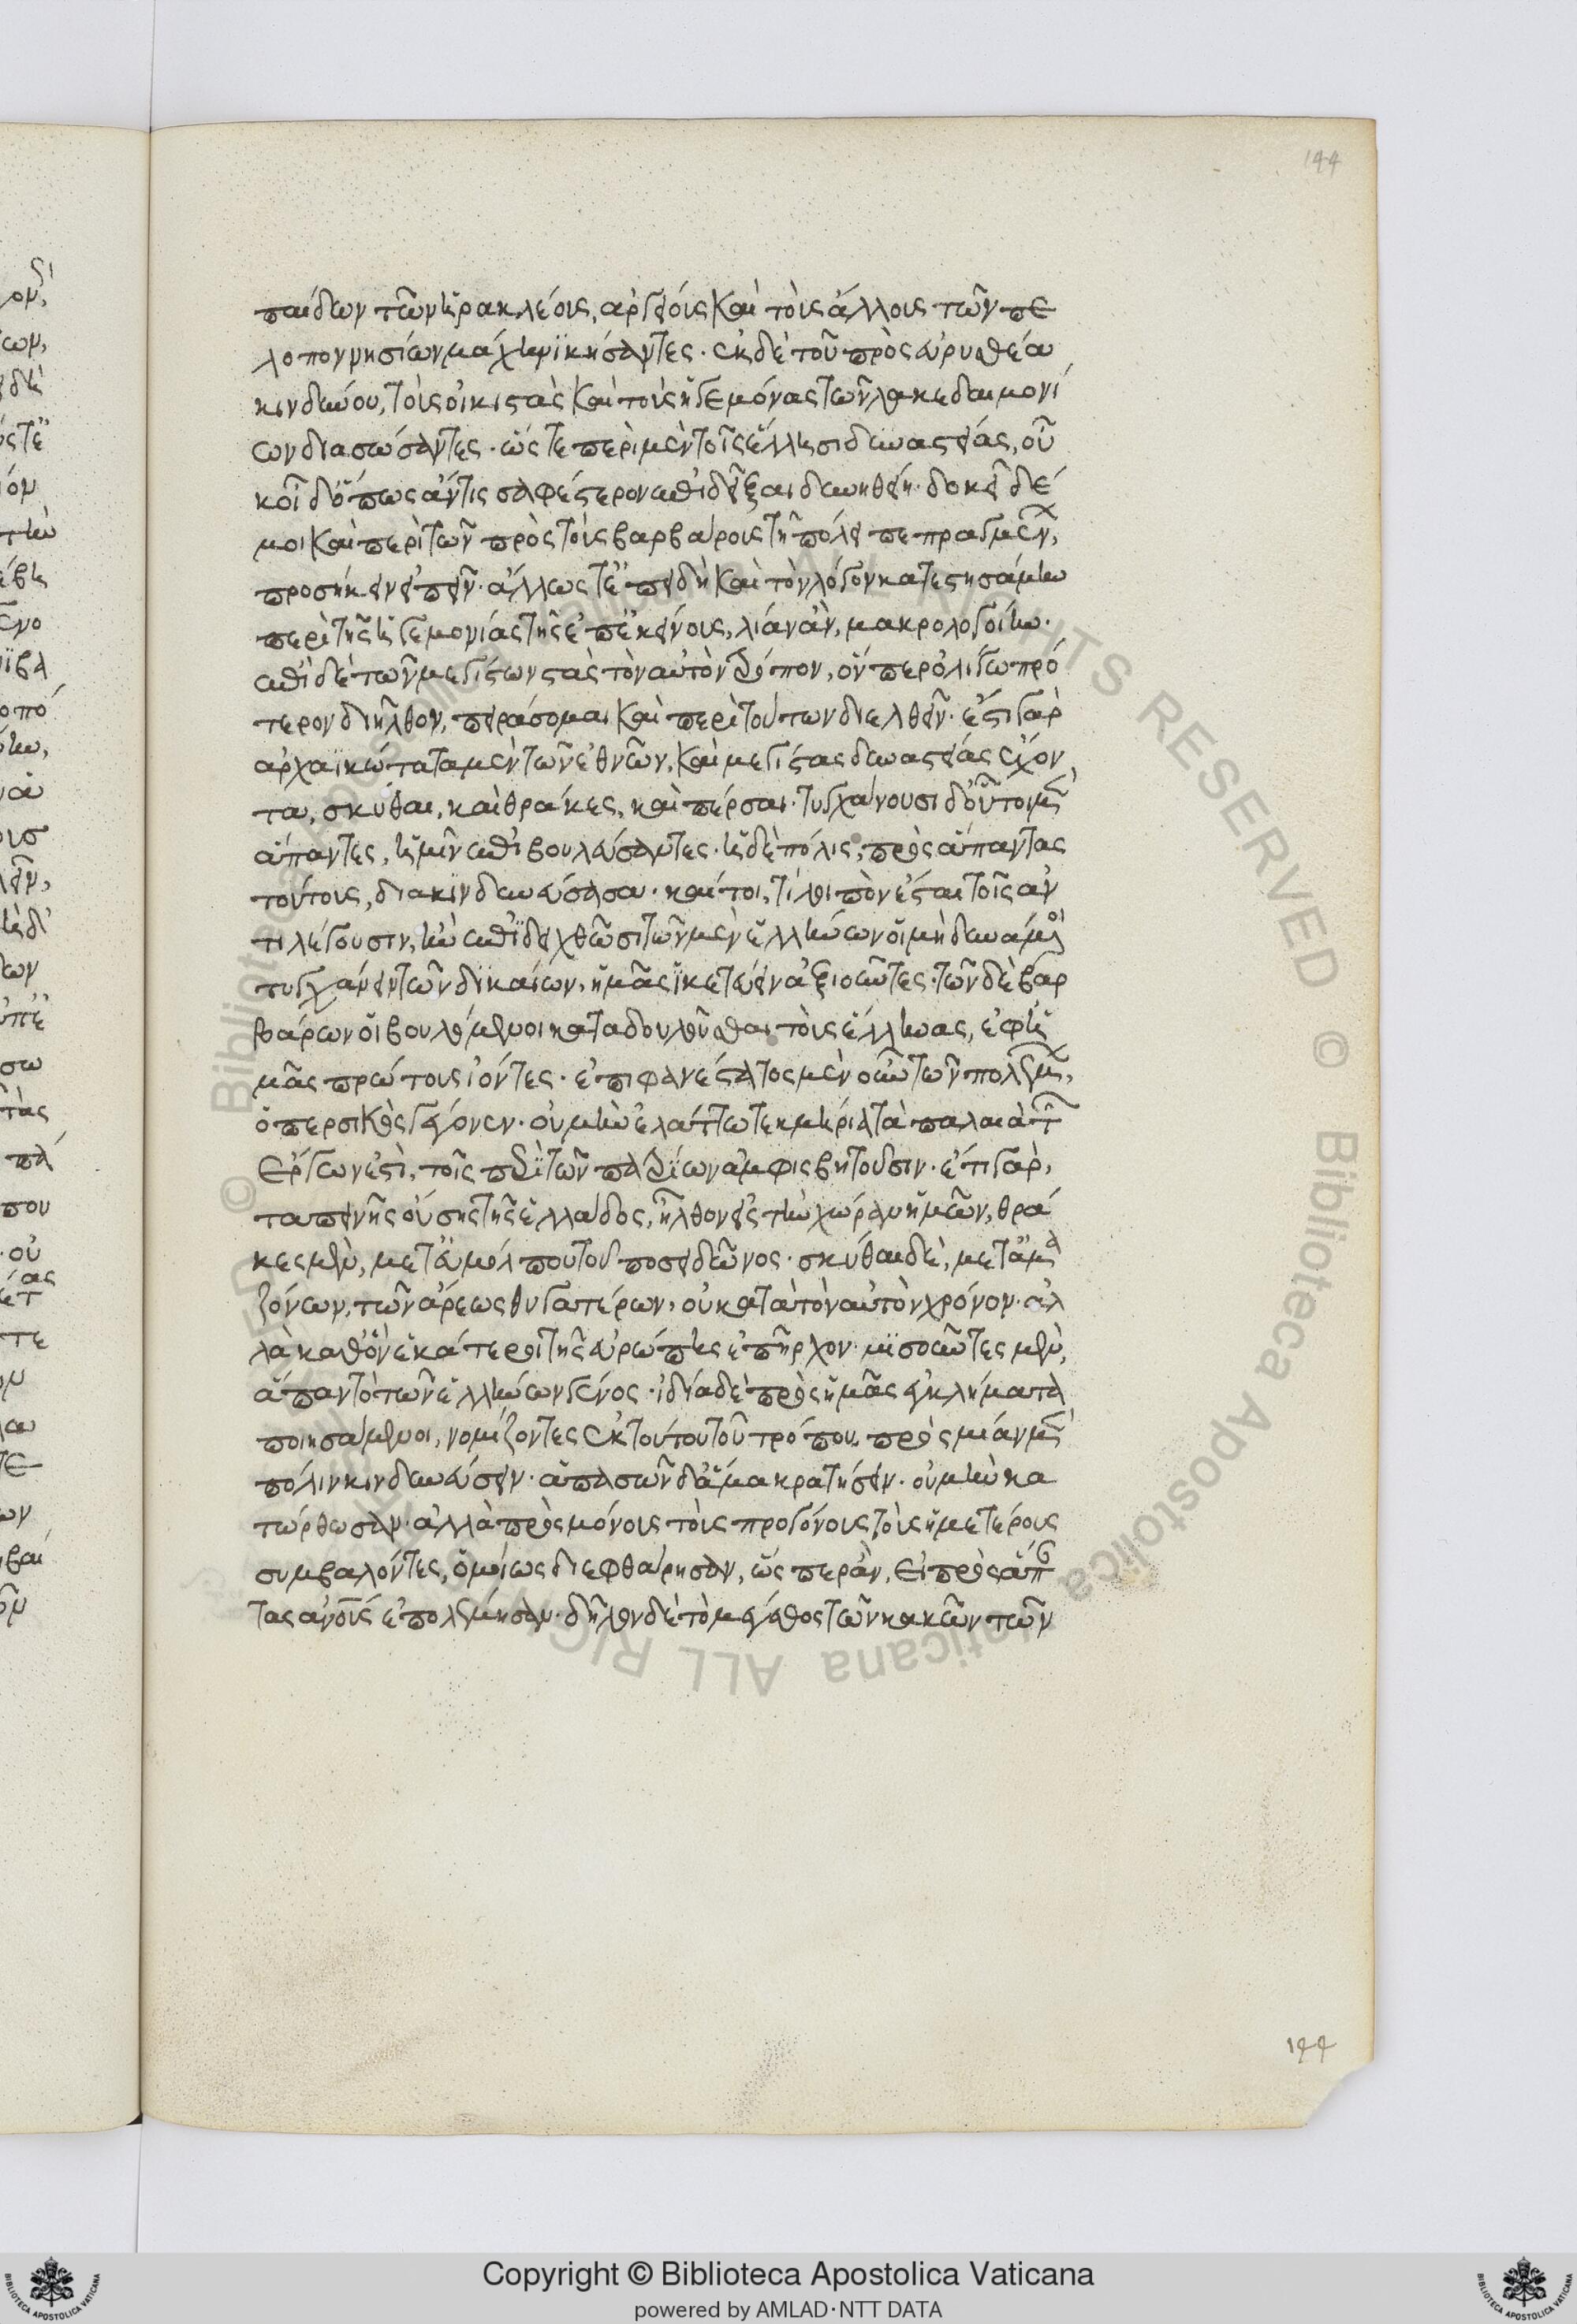 144
παίδων τῶν ἡρακλέους, ἀργείους καὶ τοὺς ἄλλους τῶν πε
λοποννησίων μάχῃ νικήσαντες· ἐκ δὲ τοῦ πρὸς εὐρυσθέα
κινδύνου, τοὺς οἰκιστὰς καὶ τοὺς ἡγεμόνας τῶν λακεδαιμονί
ων διασώσαντες· ὥστε περὶ μὲν τῆς ἐν ἕλλησι δυναστείας, οὐ
κ οἶδ' ὅπως ἄν τις σαφέστερον ἐπιδεῖξαι δυνηθείη· δοκεῖ δέ
μοι καὶ περὶ τῶν πρὸς τοὺς βαρβάρους τῇ πόλει πεπραγμένων,
προσήκειν εἰπεῖν· ἄλλως τ' ἐπειδὴ καὶ τὸν λόγον κατεστησάμην
περὶ τῆς ἡγεμονίας τῆς ἐπ' ἐκείνους, λίαν ἂν μακρολογοίην·
ἐπὶ δὲ τῶν μεγίστων στὰς τὸν αὐτὸν τρόπον, ὅνπερ ὀλίγῳ πρό
τερον διῆλθον, πειράσομαι καὶ περὶ τούτων διελθεῖν· ἔστι γὰρ
ἀρχαϊκώτατα μὲν τῶν ἐθνῶν, καὶ μεγίστας δυναστείας ἔχον
τα, σκύθαι, καὶ θρᾷκες, καὶ πέρσαι· τυγχάνουσι δ' οὗτοι μὲν
ἅπαντες, ἡμῖν ἐπιβουλεύσαντες· ἡ δὲ πόλις, πρὸς ἅπαντας
τούτους, διακινδυνεύσασα· καίτοι, τί λοιπὸν ἔσται τοῖς ἀν
τιλέγουσιν, ἢν ἐπιδειχθῶσι τῶν μὲν ἑλλήνων οἱ μὴ δυνάμενοι
τυγχάνειν τῶν δικαίων, ἡμᾶς ἱκετεύειν ἀξιοῦντες· τῶν δὲ βαρ
βάρων οἱ βουλόμενοι καταδουλοῦσθαι τοὺς ἕλληνας, ἐφ' ἡ
μᾶς πρώτους ἰόντες· ἐπιφανέστατος μὲν οὖν τῶν πολέμων,
ὁ περσικὸς γέγονεν· οὐ μὴν ἐλάττω τεκμήρια τὰ παλαιὰ τῶν
ἔργων ἐστὶ, τοῖς περὶ τῶν πατρίων ἀμφισβητοῦσιν· ἔτι γὰρ,
ταπεινῆς οὔσης τῆς ἑλλάδος, ἦλθον εἰς τὴν χώραν ἡμῶν, θρᾷ
κες μὲν, μετ' εὐμόλπου τοῦ ποσειδῶνος· σκύθαι δὲ, μετ' ἀμα
ζόνων, τῶν ἄρεως θυγατέρων, οὐ κατὰ τὸν αὐτὸν χρόνον· ἀλ
λὰ καθ' ὃν ἑκάτεροι τῆς εὐρώπης ἐπῆρχον· μισοῦντες μὲν,
ἅπαν τὸ τῶν ἑλλήνων γένος· ἰδίᾳ δὲ πρὸς ἡμᾶς ἐγκλήματα
ποιησάμενοι, νομίζοντες ἐκ τούτου τοῦ τρόπου πρὸς μίαν μὲν
πόλιν κινδυνεύσειν· ἁπασῶν δ' ἅμα κρατήσειν· οὐ μὴν κα
τώρθωσαν· ἀλλὰ πρὸς μόνους τοὺς προγόνους τοὺς ἡμετέρους
συμβαλόντες, ὁμοίως διεφθάρησαν, ὥσπερ ἂν, εἰ πρὸς ἅπαν
τας ἀνους ἐπολέμησαν· δῆλον δὲ τὸ μέγεθος τῶν κακῶν τῶν
144
© Biblioteca Apostolica Vaticana ALL RIGHTS RESERVED
Copyright © Biblioteca Apostolica Vaticana
powered by AMLAD·NTT DATA